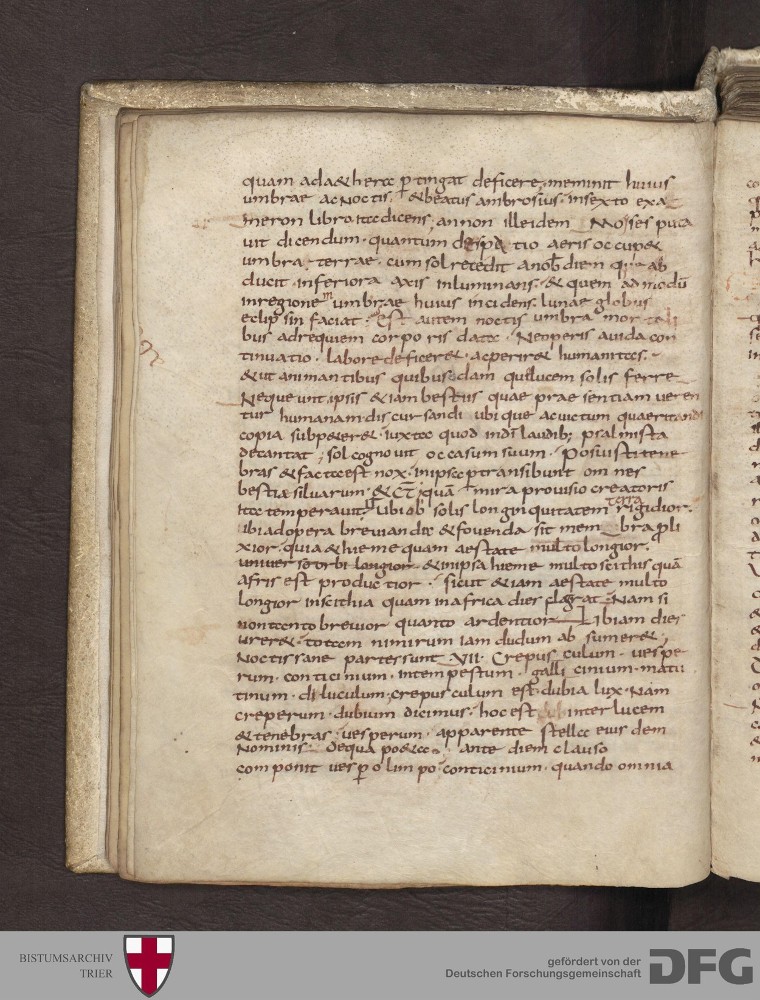 quam ad aethera ꝑtingat deficere; meminit huius
umbrae ac noctis. & beatus ambrosius. in sexto exa
meron libro ita dicens; an non ille idem Moises puta
uit dicendum. quantum de spatio aeris occup&
umbra. terrae. cum sol recedit a nobis diem
ducit. inferiora axis inluminans. & quem ad modū
in regionem umbrae huius incidens lunae globus
eclipsin faciat. Est autem noctis umbra mortali
bus ad requiem corporis data. Ne operis auida con
tinuatio. labore deficer&. ac perir& humanitas.
& ut animantibus quibusdam que lucem solis ferre
Nequeunt ipsis & iam bestiis quae praesentiam ueren
tur humanam discursandi ubique ac uictum quaeritandi
copia subp&er&. iuxta quod in dī laudib; psalmista
decantat; sol cognouit occasum suum. Posuisti tene
bras & facta est nox. in ipsa ꝑtransibunt omnes
bestiæ siluarum. & c̄t; quā mira prouisio creatoris
ita temperauit. ut ubi ob solis longinquitatem terra rigidior.
ibi ad opera breuianda & fouenda sit membra ꝓli
xior. quia & hieme quam aestate multo longior.
uniuerso orbi longior. & in ipsa hieme multo scithis quā
afris est productior. sicut & iam aestate multo
longior in scithia quam in africa dies flagrat. Nam si
non tanto breuior quanto ardentior Libiam dies
urer&. totam nimirum iam dudum absumer&;
Noctis sane partes sunt VII. Crepusculum. uespe
rum. conticinium. intempestum. gallicinium. matu
tinum. diluculum; crepusculum est. dubia lux. Nam
creperum. dubium dicimus. hoc est inter lucem
& tenebras. uesperum. apparente stella eius dem
Nominis. de qua po&a. ante diem clauso
componit uesꝑ olimpo. conticinium. quando omnia
BISTUMSARCHIV
TRIER
gefördert von der
Deutschen Forschungsgemeinschaft
DFG